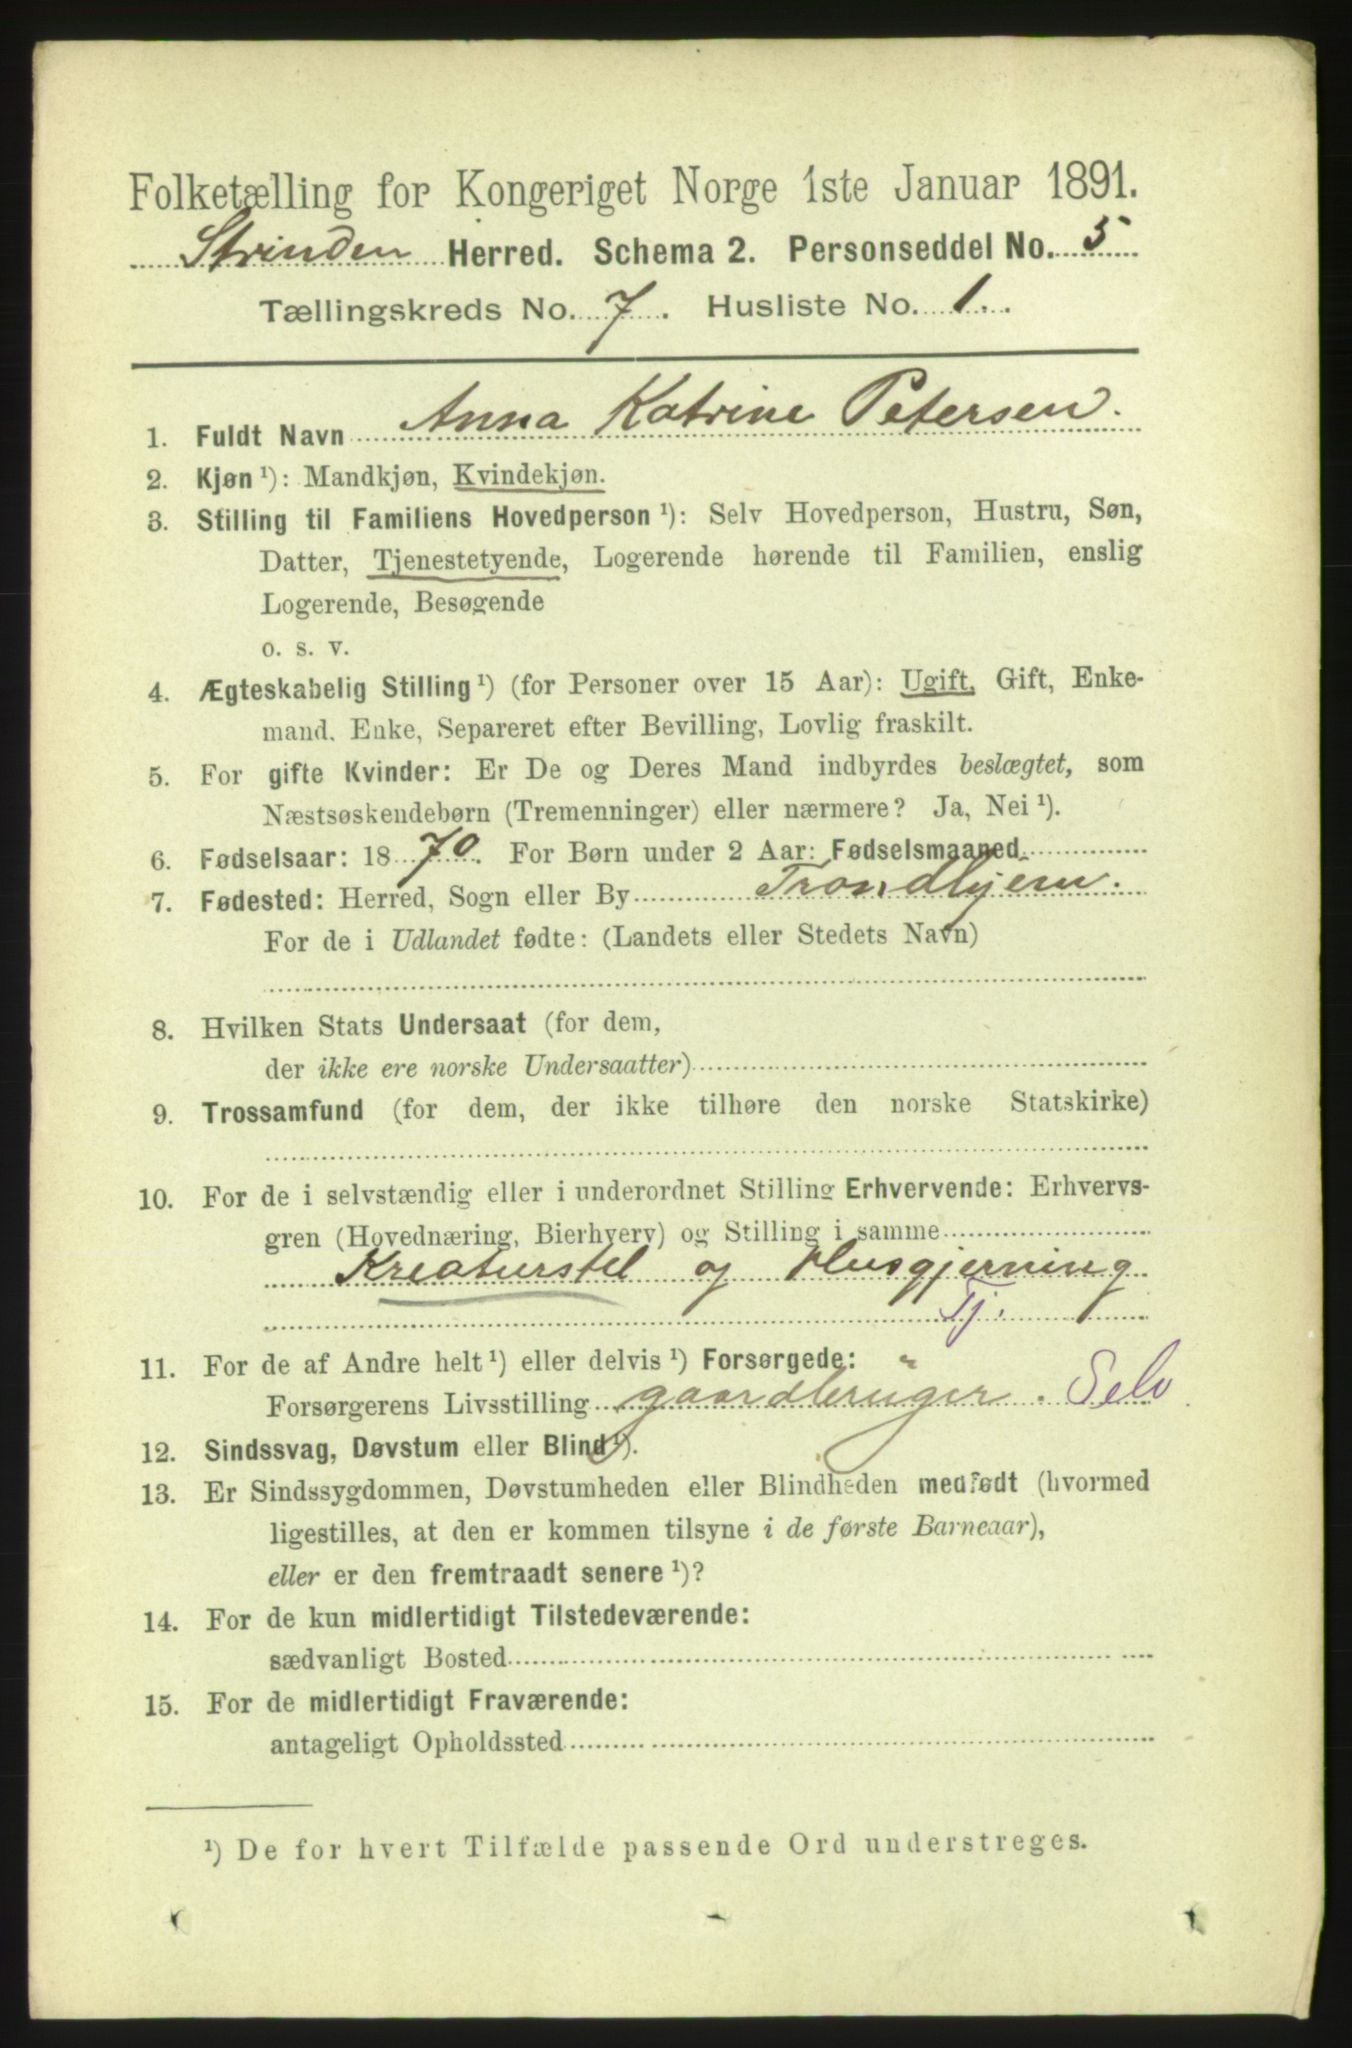 Folketælling for Kongeriget Norge 1ste Januar 1891.
Strinden Herred. Schema 2. Personseddel No. 5
Tællingskreds No. 7. Husliste No. 1.
1. Fuldt Navn Anna Katrine Petersen.
2. Kjøn ¹): Mandkjøn, Kvindekjøn.
3. Stilling til Familiens Hovedperson ¹): Selv Hovedperson, Hustru, Søn,
Datter, Tjenestetyende, Logerende hørende til Familien, enslig
Logerende, Besøgende
o. s. v.
4. Ægteskabelig Stilling ¹) (for Personer over 15 Aar): Ugift, Gift, Enke-
mand, Enke, Separeret efter Bevilling, Lovlig fraskilt.
5. For gifte Kvinder: Er De og Deres Mand indbyrdes beslægtet, som
Næstsøskendebørn (Tremenninger) eller nærmere? Ja, Nei ¹).
6. Fødselsaar: 1870. For Børn under 2 Aar: Fødselsmaaned
7. Fødested: Herred, Sogn eller By Trondhjem.
For de i Udlandet fødte: (Landets eller Stedets Navn)
8. Hvilken Stats Undersaat (for dem,
der ikke ere norske Undersaatter)
9. Trossamfund (for dem, der ikke tilhøre den norske Statskirke)
10. For de i selvstændig eller i underordnet Stilling Erhvervende: Erhvervs-
gren (Hovednæring, Bierhverv) og Stilling i samme
Kreaturstel og Husgjerning
Tj.
11. For de af Andre helt ¹) eller delvis ¹) Forsørgede:
Forsørgerens Livsstilling gaardbruger. Selv
12. Sindssvag, Døvstum eller Blind ¹).
13. Er Sindssygdommen, Døvstumheden eller Blindheden medfødt (hvormed
ligestilles, at den er kommen tilsyne i de første Barneaar),
eller er den fremtraadt senere ¹)?
14. For de kun midlertidigt Tilstedeværende:
sædvanligt Bosted
15. For de midlertidigt Fraværende:
antageligt Opholdssted
¹) De for hvert Tilfælde passende Ord understreges.